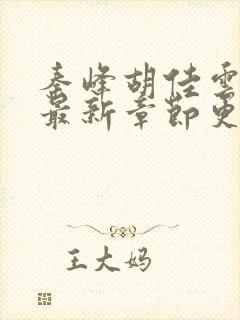 秦峰胡佳雲
最新章節更
王大妈